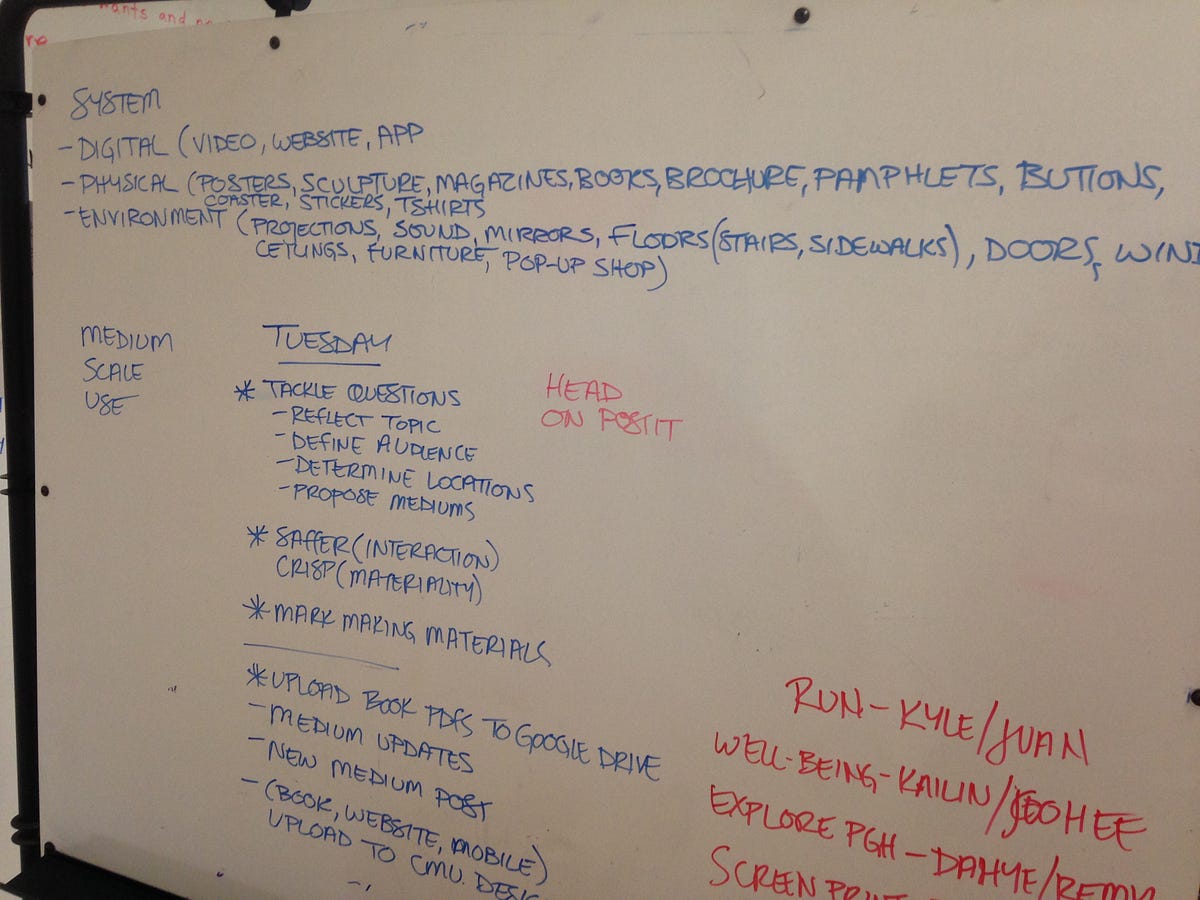 ants and
SYSTEM
- DIGITAL (VIDEO, WEBSITE, APP
- PHYSICAL (POSTERS, SCULPTURE, MAGAZINES, BOOKS, BROCHURE, PAMPHLETS, BUTTONS,
COASTER, STICKERS, TSHIRTS
- ENVIRONMENT (PROJECTIONS, SOUND, MIRRORS, FLOORS (STAIRS, SIDEWALKS), DOORS, WIND
CEILINGS, FURNITURE, POP-UP SHOP)
MEDIUM
SCALE
USE
TUESDAY
* TACKLE QUESTIONS
- REFLECT TOPIC
- DEFINE AUDIENCE
- DETERMINE LOCATIONS
- PROPOSE MEDIUMS
* SAFFER (INTERACTION)
CRISP (MATERIALITY)
* MARK MAKING MATERIALS
* UPLOAD BOOK PDFS TO GOOGLE DRIVE
- MEDIUM UPDATES
- NEW MEDIUM POST
- (BOOK, WEBSITE, MOBILE)
UPLOAD TO CMU. DESIG
HEAD
ON POSTIT
RUN - KYLE/JUAN
WELL-BEING - KAILIN/JOOHEE
EXPLORE PGH - DAHYE/REMY
SCREEN PRINT